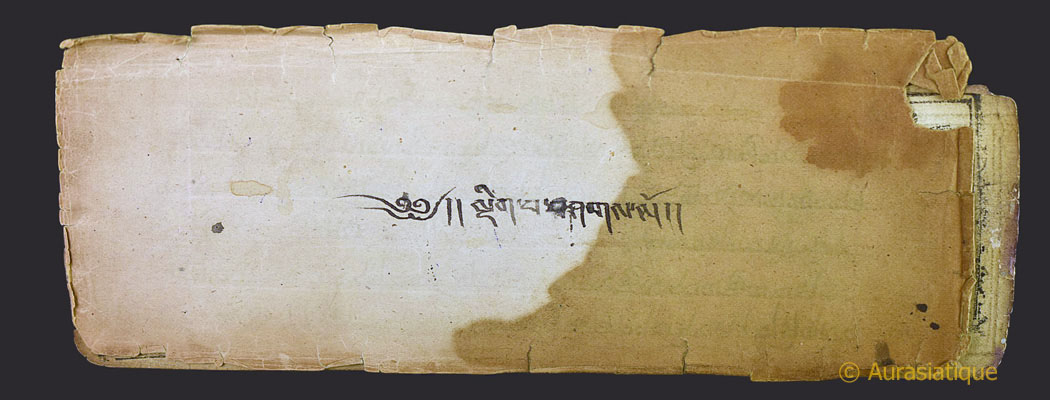 ༄༅།། སྡིག་པ་བཤགས་སོ།།
© Aurasiatique